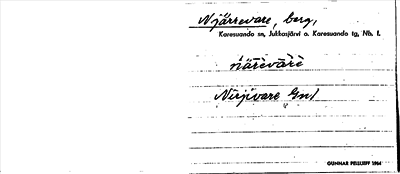 Njärrevare, berg,
Karesuando sn, Jukkasjärvi o. Karesuando tg, Nb. l.
närevare
Nirjivare Gnl
GUNNAR PELLIJEFF 1964